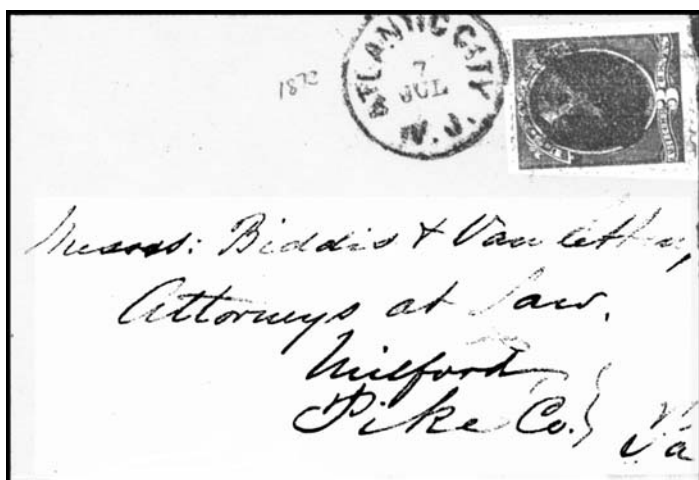 ATLANTIC CITY N.J.
7
JUL
1872
Messrs: Biddis & Van Etten,
Attorneys at Law.
Milford,
Pike Co. Pa